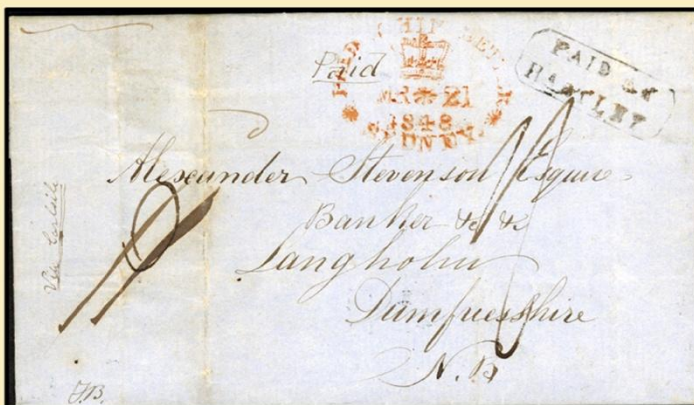 PAID SHIP LETTER
MR * 21
1848
* SYDNEY *
PAID AT
HARTLEY
Paid
Alexander Stevenson Esquire
Banker &c &c
Langholm
Dumfriesshire
N.B
Via Carlisle